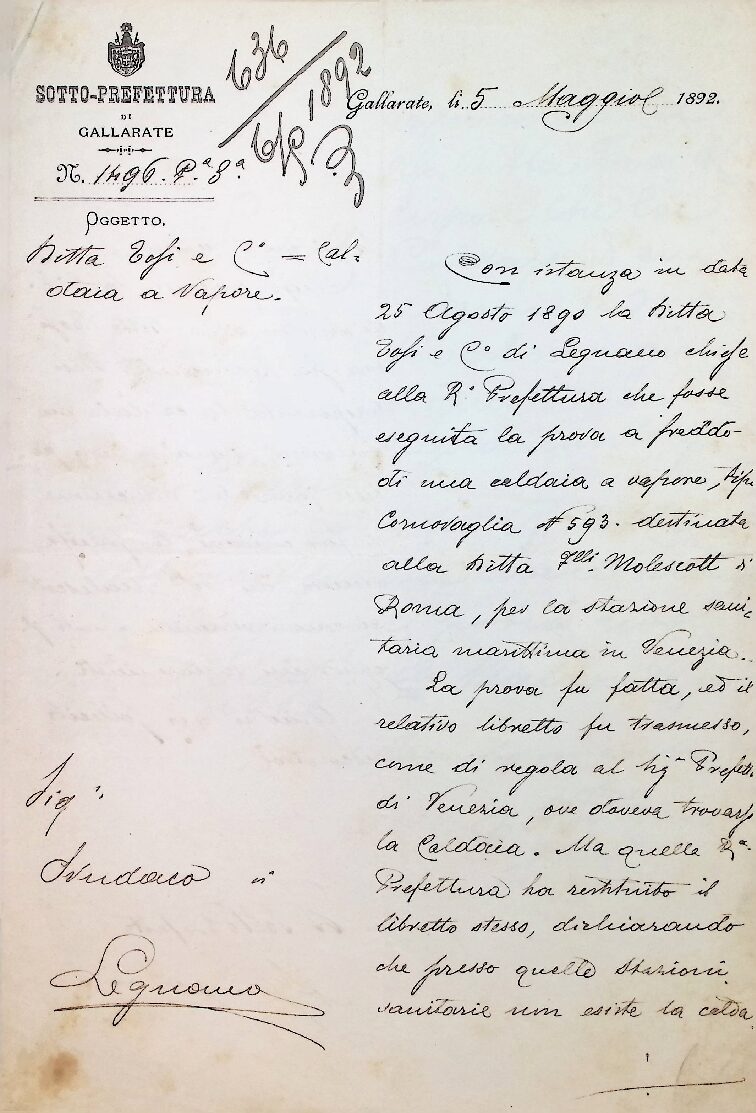 SOTTO-PREFETTURA
DI
GALLARATE
N. 1496. P.ª 8.ª
636
1892
Gallarate, li 5 Maggio 1892.
OGGETTO.
Ditta Tosi e C.º = Cal=
daia a Vapore.
Con istanza in data
25 Agosto 1890 la Ditta
Tosi e C.º di Legnano chiese
alla R.ª Prefettura che fosse
eseguita la prova a freddo
di una caldaia a vapore, tipo
Cornovaglia N 593. destinata
alla Ditta F.lli Molescott di
Roma, per la stazione sani=
taria marittima in Venezia.
La prova fu fatta, ed il
relativo libretto fu trasmesso,
come di regola al Sig.r Prefetto
di Venezia, ove doveva trovarsi
la Caldaia. Ma quella R.ª
Prefettura ha restituito il
libretto stesso, dichiarando
che presso quelle stazioni
sanitarie non esiste la calda
Sig.r
Sindaco di
Legnano